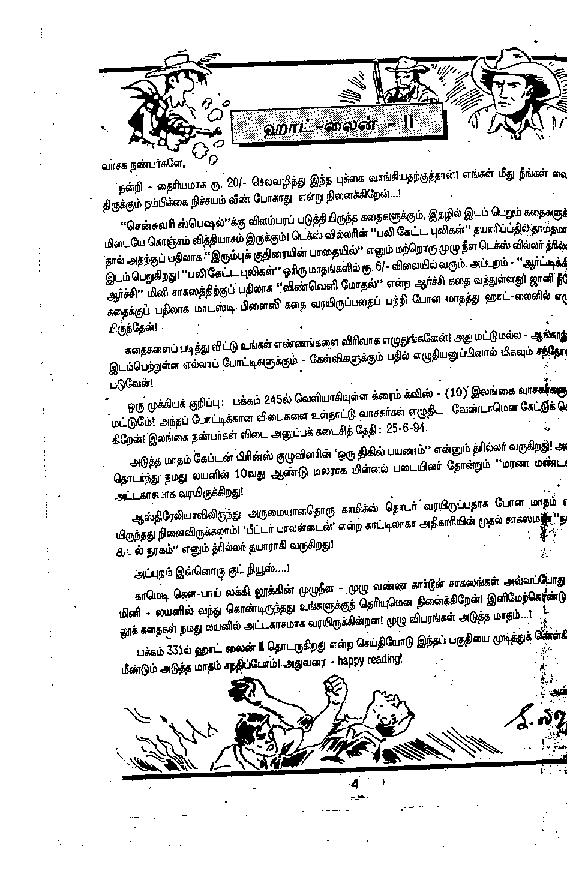 ஹாட்-லைன் - II
வாசக நண்பர்களே,
நன்றி - தைரியமாக ரூ. 20/- செலவழித்து இந்த புக்கை வாங்கியதற்குத்தான்! எங்கள் மீது நீங்கள்
திருக்கும் நம்பிக்கை நிச்சயம் வீண் போகாது என்று நினைக்கிறேன்...!
"சென்சுவரி ஸ்பெஷல்"க்கு விளம்பரப் படுத்தியிருந்த கதைகளுக்கும், இதழில் இடம் பெறும்
மிடையே கொஞ்சம் வித்தியாசம் இருக்கும்! டெக்ஸ் வில்லரின் "பலி கேட்ட புலிகள்" தயாரிப்பதில்
நால் அதற்குப் பதிலாக "இரும்புக் குதிரையின் பாதையில்" எனும் மற்றொரு முழு நீள டெக்ஸ் வில்லர்
இடம் பெறுகிறது! "பலி கேட்ட புலிகள்" ஓரிரு மாதங்களில் ரூ. 6/- விலையில் வரும். அப்புறம் -
ஆர்ச்சி" மினி சாகஸத்திற்குப் பதிலாக "விண்வெளி மோதல்" என்ற ஆர்ச்சி கதை வந்துள்ளது! ஜானி
கதைக்குப் பதிலாக மாடஸ்டி பிளைஸி கதை வரயிருப்பதைப் பற்றி போன மாதத்து ஹாட்-லைனில்
யிருந்தேன்!
கதைகளைப் படித்து விட்டு உங்கள் எண்ணங்களை விரிவாக எழுதுங்களேன்! அது மட்டுமல்ல -
இடம்பெற்றுள்ள எல்லாப் போட்டிகளுக்கும் - கேள்விகளுக்கும் பதில் எழுதியனுப்பினால் மிகவும்
படுவேன்!
ஒரு முக்கியக் குறிப்பு: பக்கம் 245ல் வெளியாகியுள்ள க்ரைம் க்விஸ் - (10) இலங்கை
மட்டுமே! அந்தப் போட்டிக்கான விடைகளை உள்நாட்டு வாசகர்கள் எழுதிட வேண்டாமென கேட்டுக்
கிறேன்! இலங்கை நண்பர்கள் விடை அனுப்பக் கடைசித் தேதி: 25-6-94.
அடுத்த மாதம் கேப்டன் பிரின்ஸ் குழுவினரின் 'ஒரு திகில் பயணம்" என்னும் த்ரில்லர் வருகிறது!
தொடர்ந்து நமது லயனின் 10வது ஆண்டு மலராக பில்லல் படையினர் தோன்றும் "மரண
அட்டகாசமாக வரயிருக்கிறது!
ஆஸ்திரேலியாவிலிருந்து அருமையானதொரு காமிக்ஸ் தொடர் வரயிருப்பதாக போன மாதம்
யிருந்தது நினைவிருக்கலாம்! என்ற காட்டிலாகா அதிகாரியின் முதல் சாகஸமான
நரகம்" எனும் த்ரில்லர் தயாராகி வருகிறது!
அப்புறம் இன்னொரு குட் நியூஸ்....!
காமெடி கௌ-பாய் லக்கி லூக்கின் முழுநீள - முழு வண்ண கார்ட்டூன் சாகஸங்கள் அவ்வப்போது
மினி - லயனில் வந்து கொண்டிருந்தது உங்களுக்குத் தெரியுமென நினைக்கிறேன்!
லூக் கதைகள் நமது லயனில் அட்டகாசமாக வரயிருக்கின்றன! முழு விபரங்கள் அடுத்த மாதம்...!
பக்கம் 331ல் ஹாட் லைன் II தொடருகிறது என்ற செய்தியோடு இந்தப் பகுதியை முடித்துக்
மீண்டும் அடுத்த மாதம் சந்திப்போம்! அதுவரை - happy reading!
4